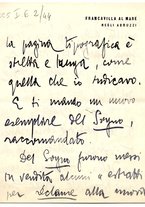 FRANCAVILLA AL MARE
NEGLI ABRUZZI
la pagina tipografica è
stretta e lunga, come
quella che io indicavo.
E ti mando un nuovo
esemplare del Sogno,
raccomandato.
Del Sogno furono messi
in vendita alcuni estratti
per réclame alla